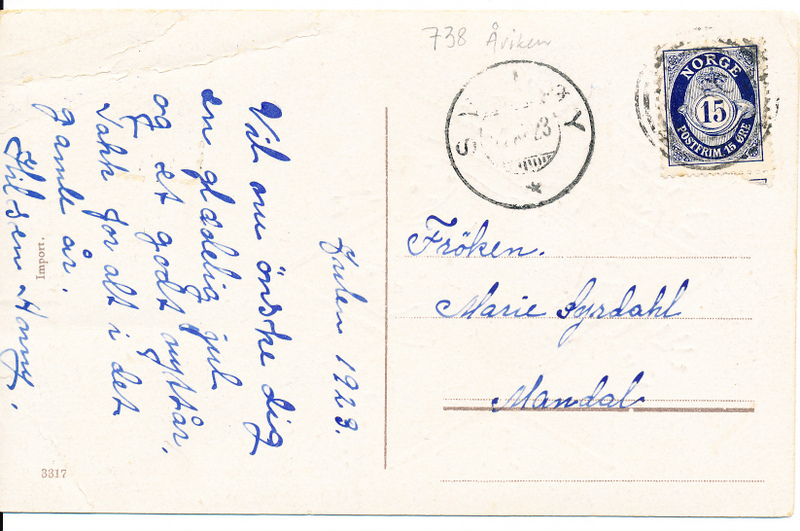 738 Åviken
NORGE
15
POSTFRIM. 15 ØRE
23
Julen 1923.
Vil nu önske dig
en glædelig jul
og et godt nyttår,
Takk for alt i det
gamle år.
Hilsen
Fröken.
Marie Syrdahl
Mandal
Import.
3317